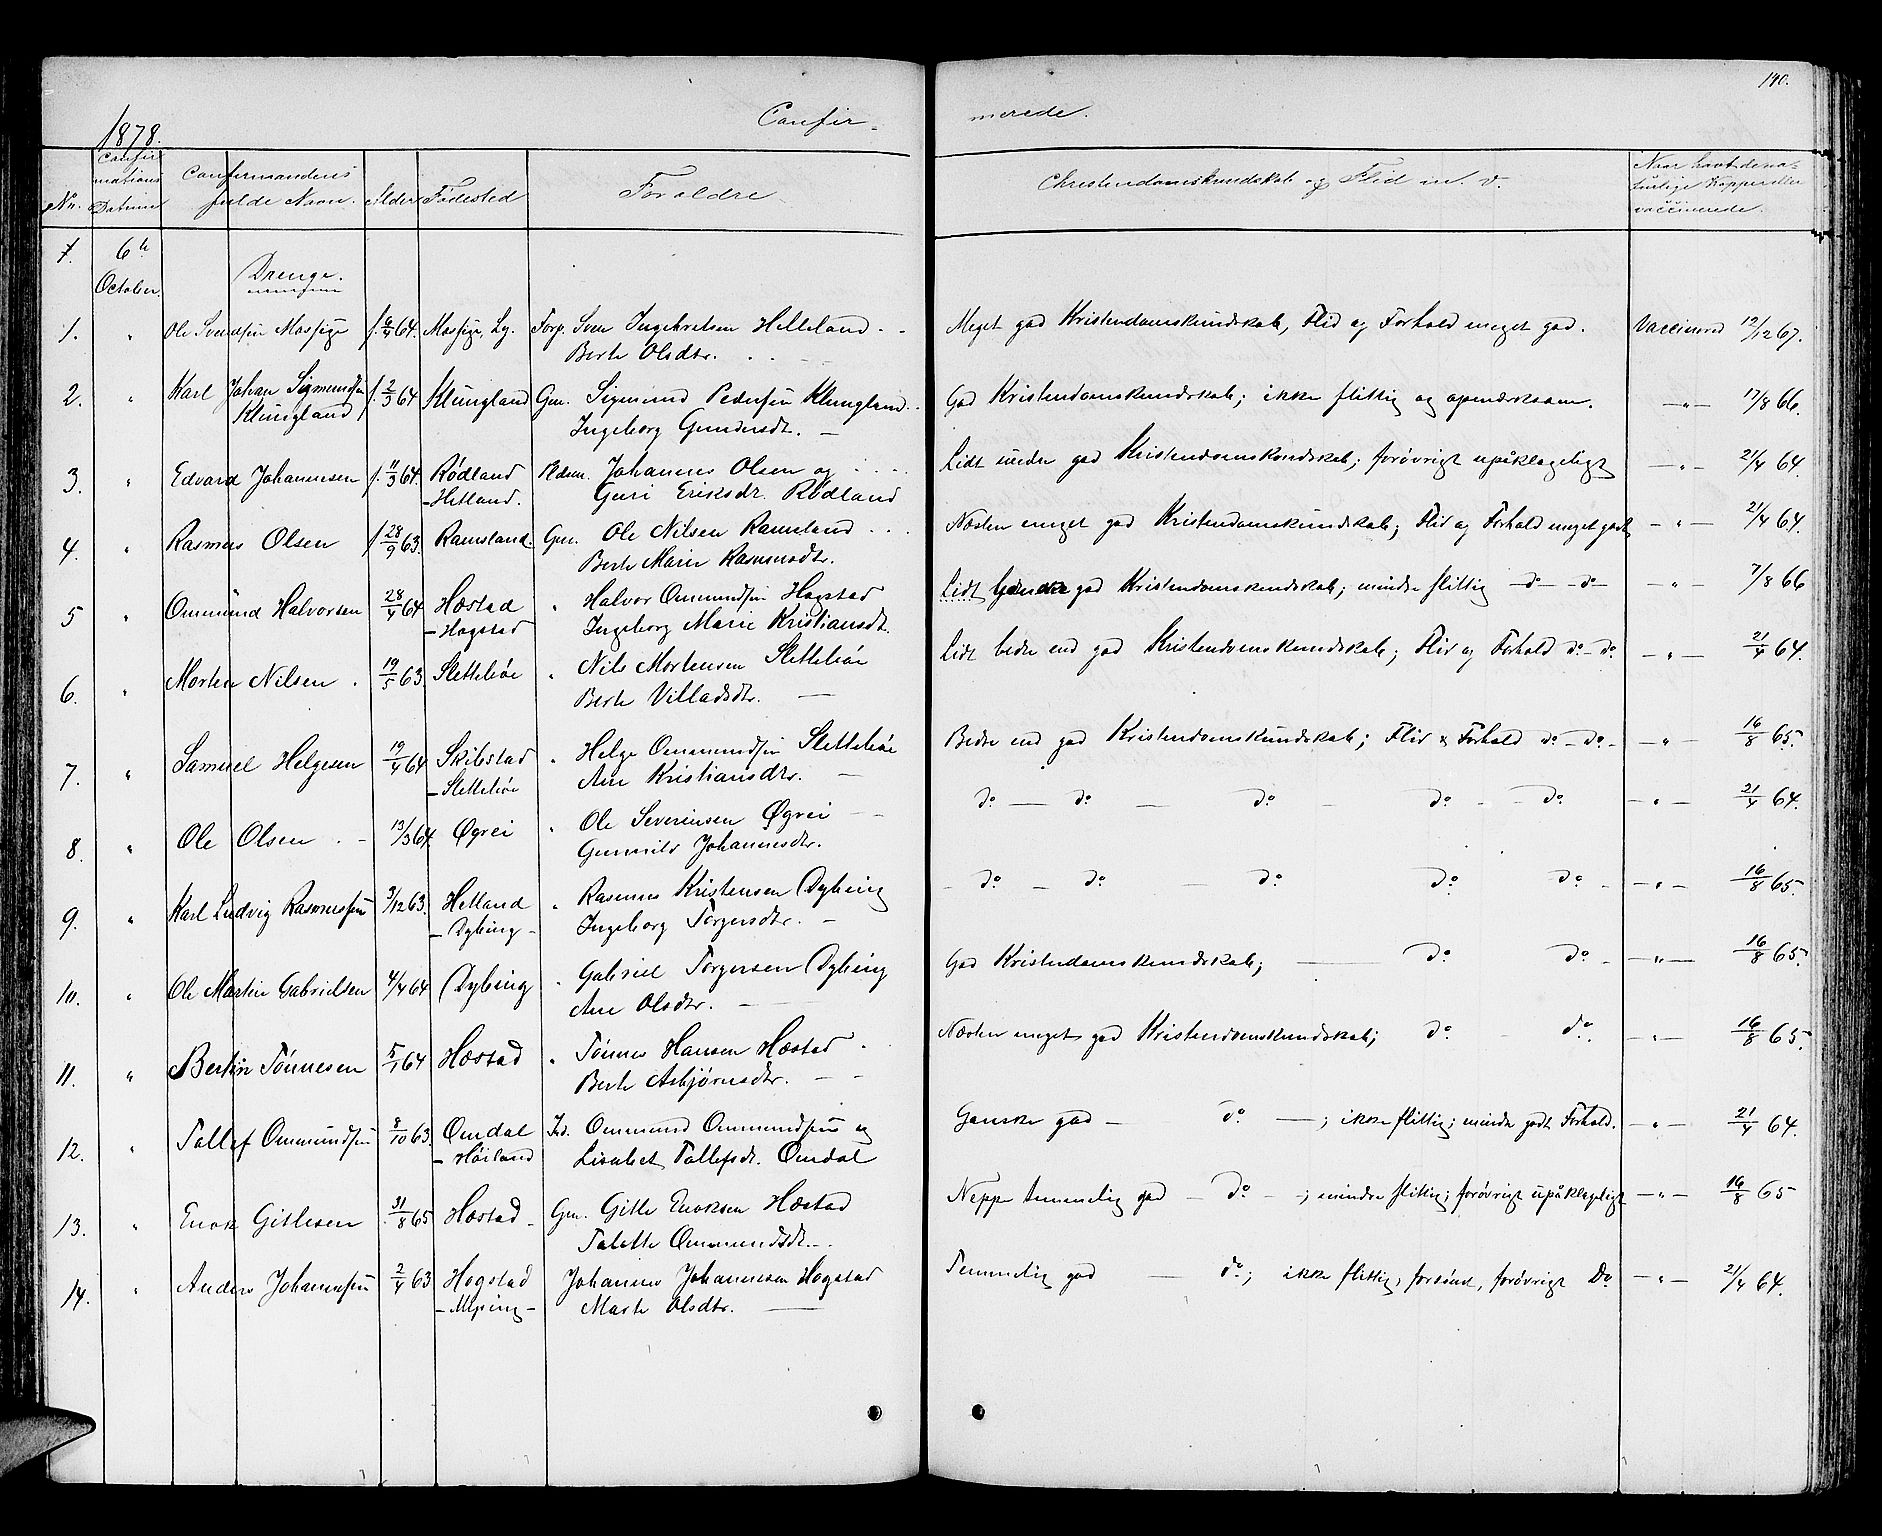 140.
1878. Confir- merede.
Nr. Confirmations Datum Confirmandens fulde Navn. Alder Fødested Foraldre Christendomskundskab og Flid m. v. Naar havt de naturlige Kopper eller vaccinerede.
6te October.
Drenge.
1. " Ole Svendsen Mossige f. 6/4 64. Mossige, Ly. Forp. Sven Ingebretsen Helleland Meget god Kristendomskundskab, Flid og Forhold meget god. Vaccinered 12/12 67.
Berte Olsdtr.
2. " Karl Johan Sigmundsen f. 2/3 64 Klungland Gm. Sigmund Pedersen Klungland God Kristendomskundskab; ikke flittig og opmærksom. —"— 17/8 66.
Klungland Ingeborg Gundersdt. —
3. " Edvard Johannesen f. 11/3 64. Rødland Johannes Olsen og Lidt mindre god Kristendomskundskab; forøvrigt upåklageligt —"— 21/4 64.
-Hetland. Guri Eriksdr. Rødland
4. " Rasmus Olsen f. 28/9 63. Ramsland. Gm. Ole Nilsen Ramsland Næsten meget god Kristendomskundskab; Flid og Forhold meget godt —"— 21/4 64.
Berte Marie Rasmusdtr.
5 " Ommund Halvorsen 28/4 64 Hæstad " Halvor Ommundsen Hogstad Lidt god Kristendomskundskab; mindre flittig —do— —do— —"— 7/8 66
-Hogstad Ingeborg Marie Kristiansdt.
6. " Morten Nilsen. 19/5 63. Slettebøe " Nils Mortensen Slettebøe Lidt bedre end god Kristendomskundskab; Flid og Forhold do - do. —"— 21/4 64.
Berte Villadsdtr. —
7. " Samuel Helgesen 19/4 64 Skibstad " Helge Ommundsen Slettebøe Bedre end god Kristendomskundskab; Flid & Forhold do - do. —"— 16/8 65.
-Slettebøe Ane Kristiansdtr. —
8. " Ole Olsen 13/3 64. Øgrei " Ole Severinsen Øgrei do — do — do - do - do —"— 21/4 64.
Gunnild Johannesdtr.
9. " Karl Ludvig Rasmussen 3/12 63. Hetland " Rasmus Kristensen Dybing - do — do — do do do - —"— 16/8 65.
-Dybing- Ingeborg Torgersdtr. —
10. " Ole Martin Gabrielsen 4/4 64 Dybing " Gabriel Torgersen Dybing God Kristendomskundskab; — do do - —"— 16/8 65.
Ane Olsdtr. —
11. " Bertin Tønnesen 5/1 64 Hæstad " Tønnes Hansen Hæstad Næsten meget god Kristendomskundskab; do - do. —"— 16/8 65.
Berte Asbjørnsdtr. —
12. " Tallef Ommundsen 8/10 63. Omdal Id. Ommund Ommundsen og Ganske god — do —; ikke flittig; mindre godt Forhold. —"— 21/4 64.
-Høiland Lisabet Tallefsdt. Omdal
13. " Enok Gitlesen 31/8 65 Hæstad - Gm. Gitle Enoksen Hæstad Neppe temmelig god — do —; mindre flittig; forøvrigt upåklageligt —"— 16/8 65
Talette Ommundsdt.
14. " Anders Johannesen 2/4 63 Hogstad Johannes Johannesen Hogstad Temmelig god — do; ikke flittig, forsømt, forøvrigt Do —"— 21/4 64.
Marte Olsdtr. —